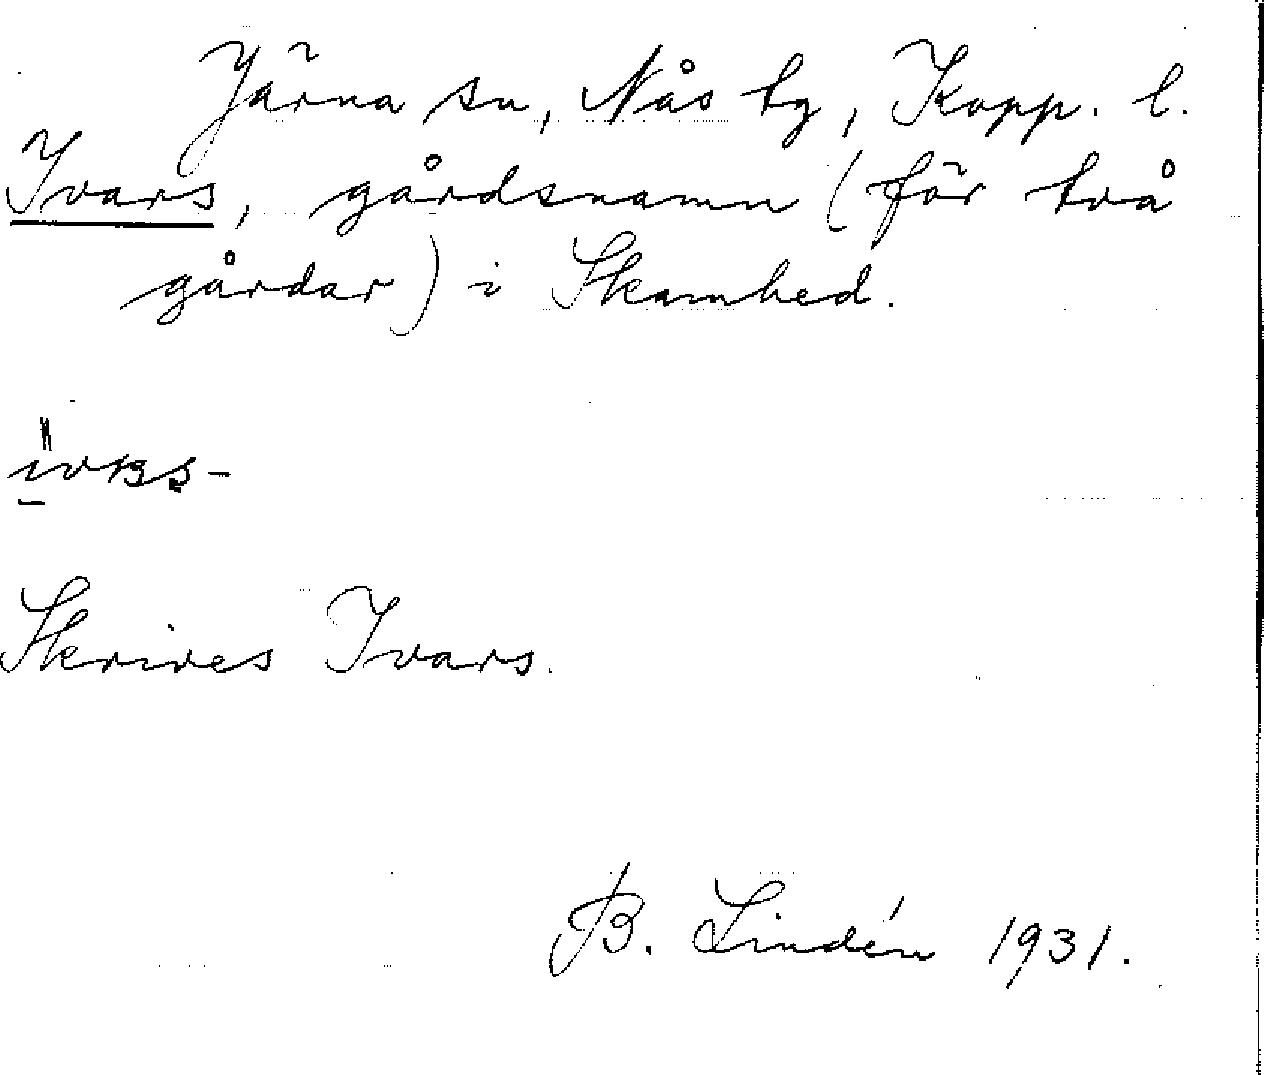 Järna sn, Nås tg, Kopp. l.
Ivars, gårdsnamn (för två
gårdar) i Skamhed.
Skrives Ivars.
B. Lindén 1931.